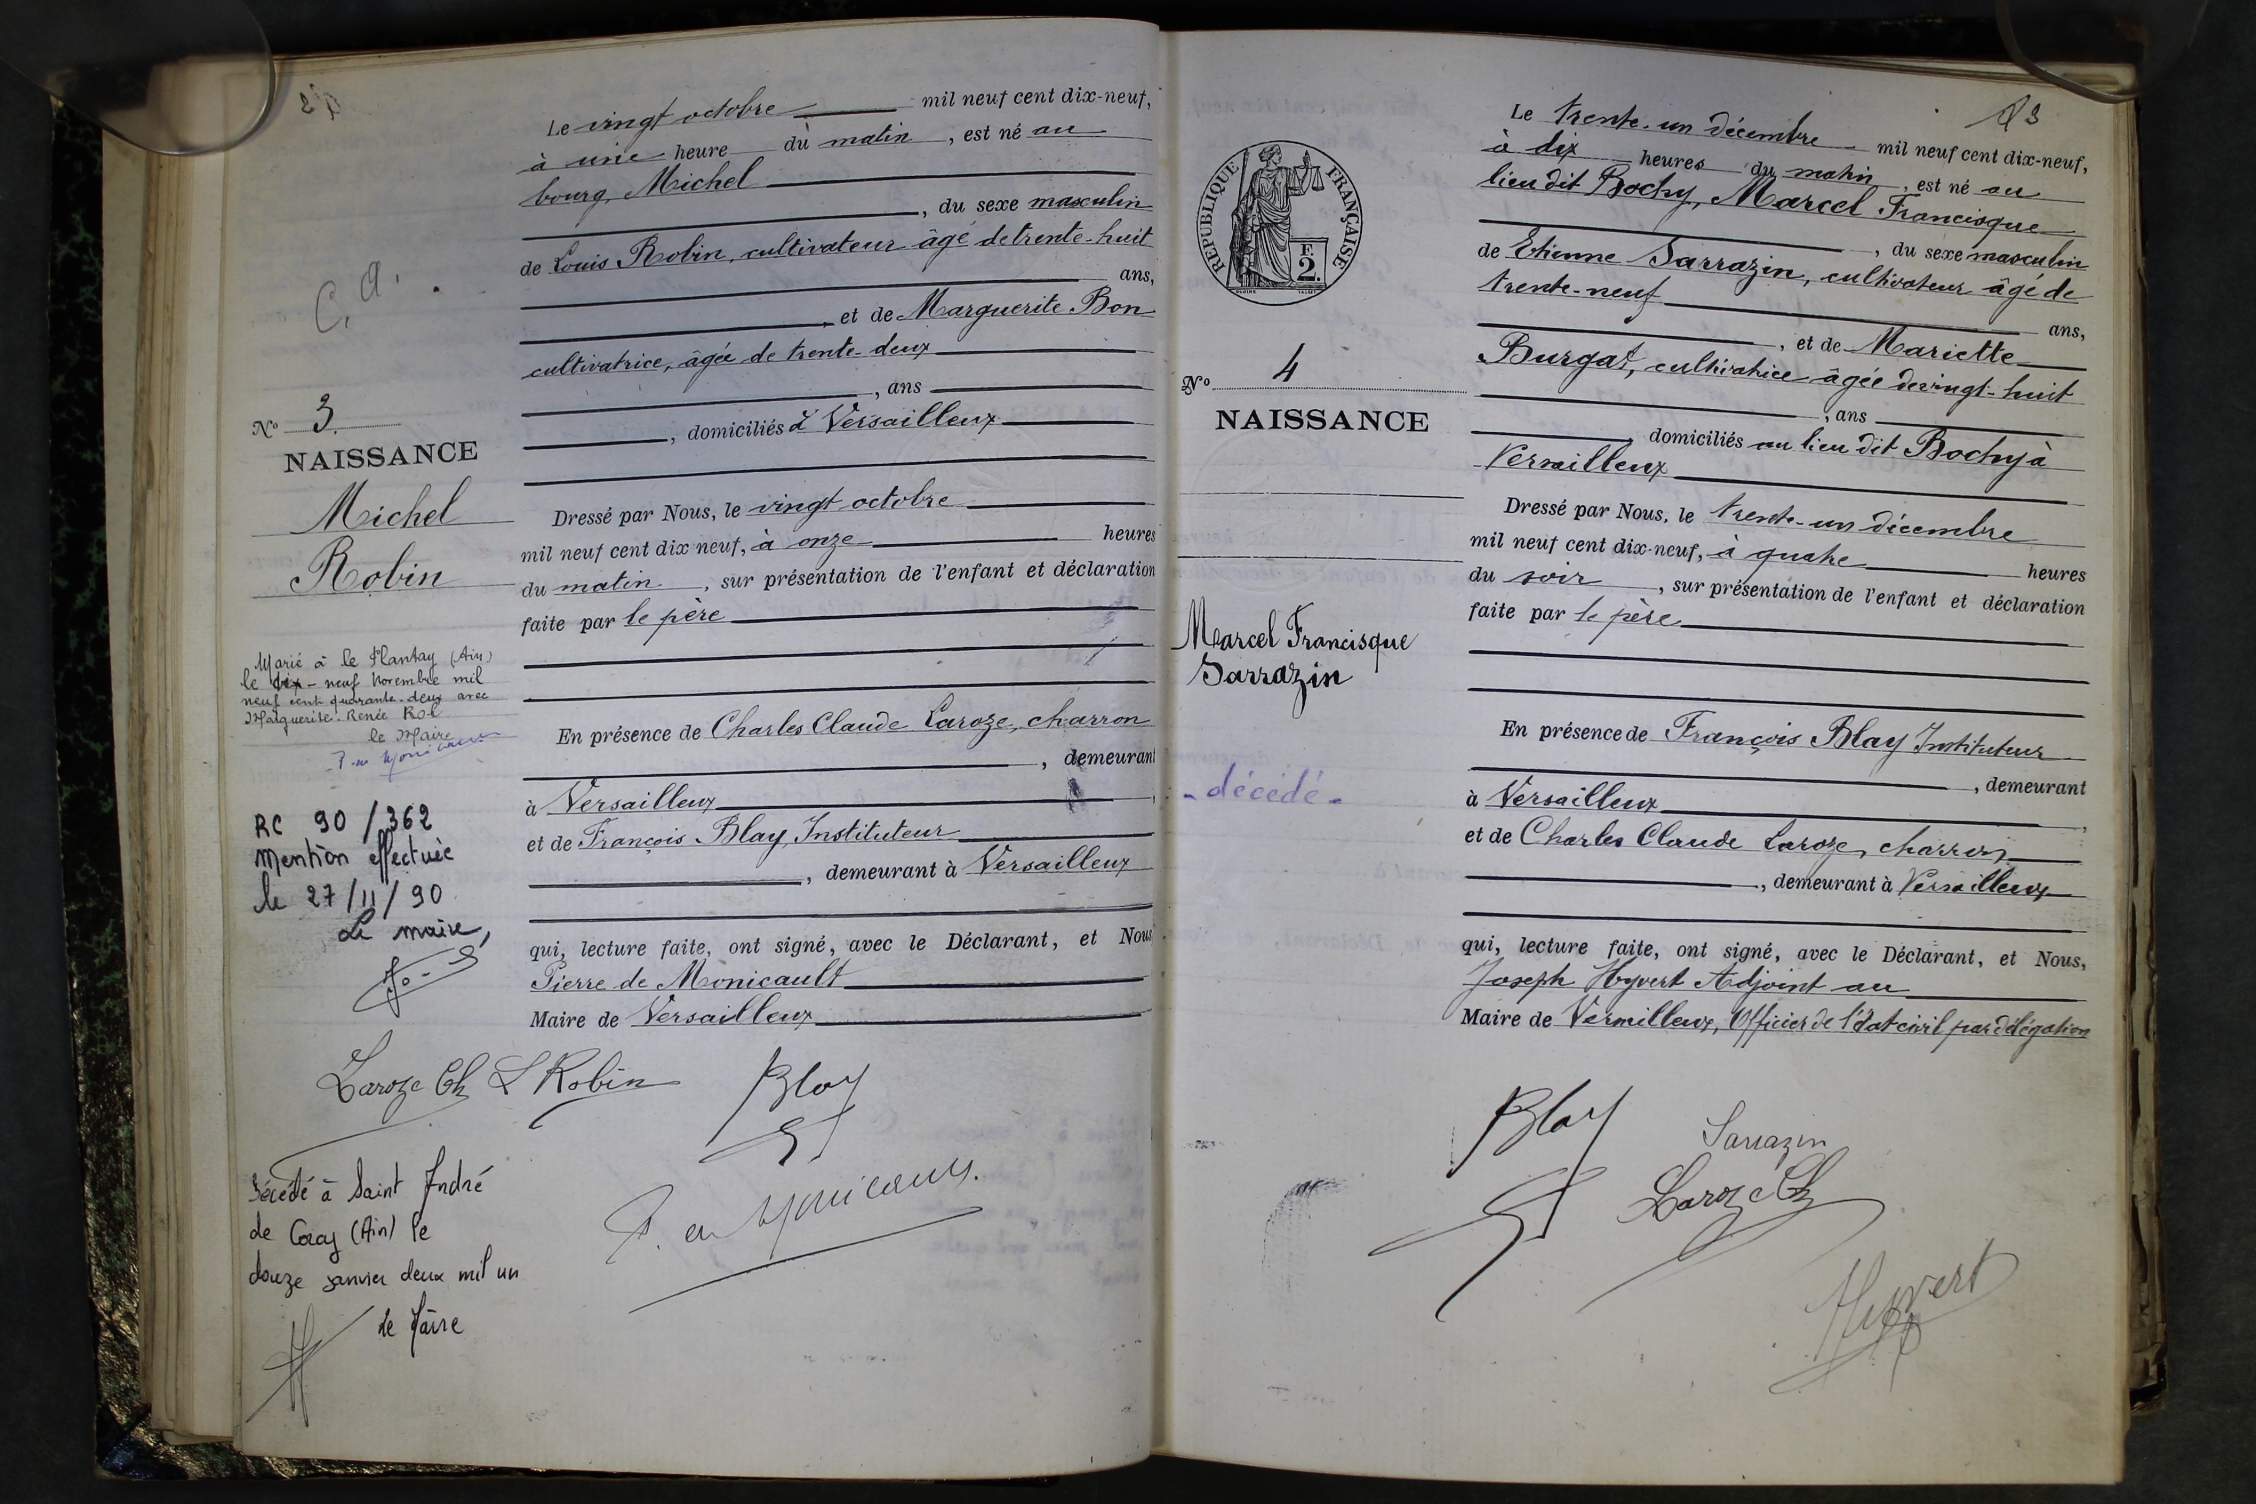 Le vingt octobre mil neuf cent dix-neuf,
à une heure du matin, est né au
bourg, Michel
, du sexe masculin
de Louis Robin, cultivateur âgé de trente-huit
ans,
, et de Marguerite Bon
cultivatrice, âgée de trente-deux
, ans
, domiciliés à Versailleux
Dressé par Nous, le vingt octobre
mil neuf cent dix neuf, à onze heures
du matin, sur présentation de l'enfant et déclaration
faite par le père
En présence de Charles Claude Laroze, charron
, demeurant
à Versailleux
et de François Blay, Instituteur
, demeurant à Versailleux
qui, lecture faite, ont signé, avec le Déclarant, et Nous
Pierre de Monicault
Maire de Versailleux
Laroze Ch L Robin Blay
C. a.
No 3.
NAISSANCE
Michel
Robin
Marié à le Plantay (Ain)
le dix-neuf Novembre mil
neuf cent quarante-deux avec
Marguerite-Renée Rol
le Maire
RC 90/362
Mention effectuée
le 27/11/90
Le maire,
Décédé à Saint André
de Corcy (Ain) le
douze janvier deux mil un
Le Maire
93
Le trente-un décembre mil neuf cent dix-neuf,
à dix heures du matin, est né au
lieu dit Bochy, Marcel Francisque
, du sexe masculin
de Etienne Sarrazin, cultivateur âgé de
trente-neuf ans,
, et de Mariette
Burgat, cultivatrice âgée de vingt-huit
, ans
, domiciliés au lieu dit Bochy à
Versailleux
Dressé par Nous, le trente-un décembre
mil neuf cent dix-neuf, à quatre heures
du soir, sur présentation de l'enfant et déclaration
faite par le père
En présence de François Blay Instituteur
, demeurant
à Versailleux
et de Charles Claude Laroze, charron
, demeurant à Versailleux
qui, lecture faite, ont signé, avec le Déclarant, et Nous,
Joseph Hyvert Adjoint au
Maire de Versailleux, Officier de l'état civil par délégation
Blay Sarrazin
Laroze Ch
Hyvert
RÉPUBLIQUE FRANÇAISE
F.
2.
No 4
NAISSANCE
Marcel Francisque
Sarrazin
- décédé -